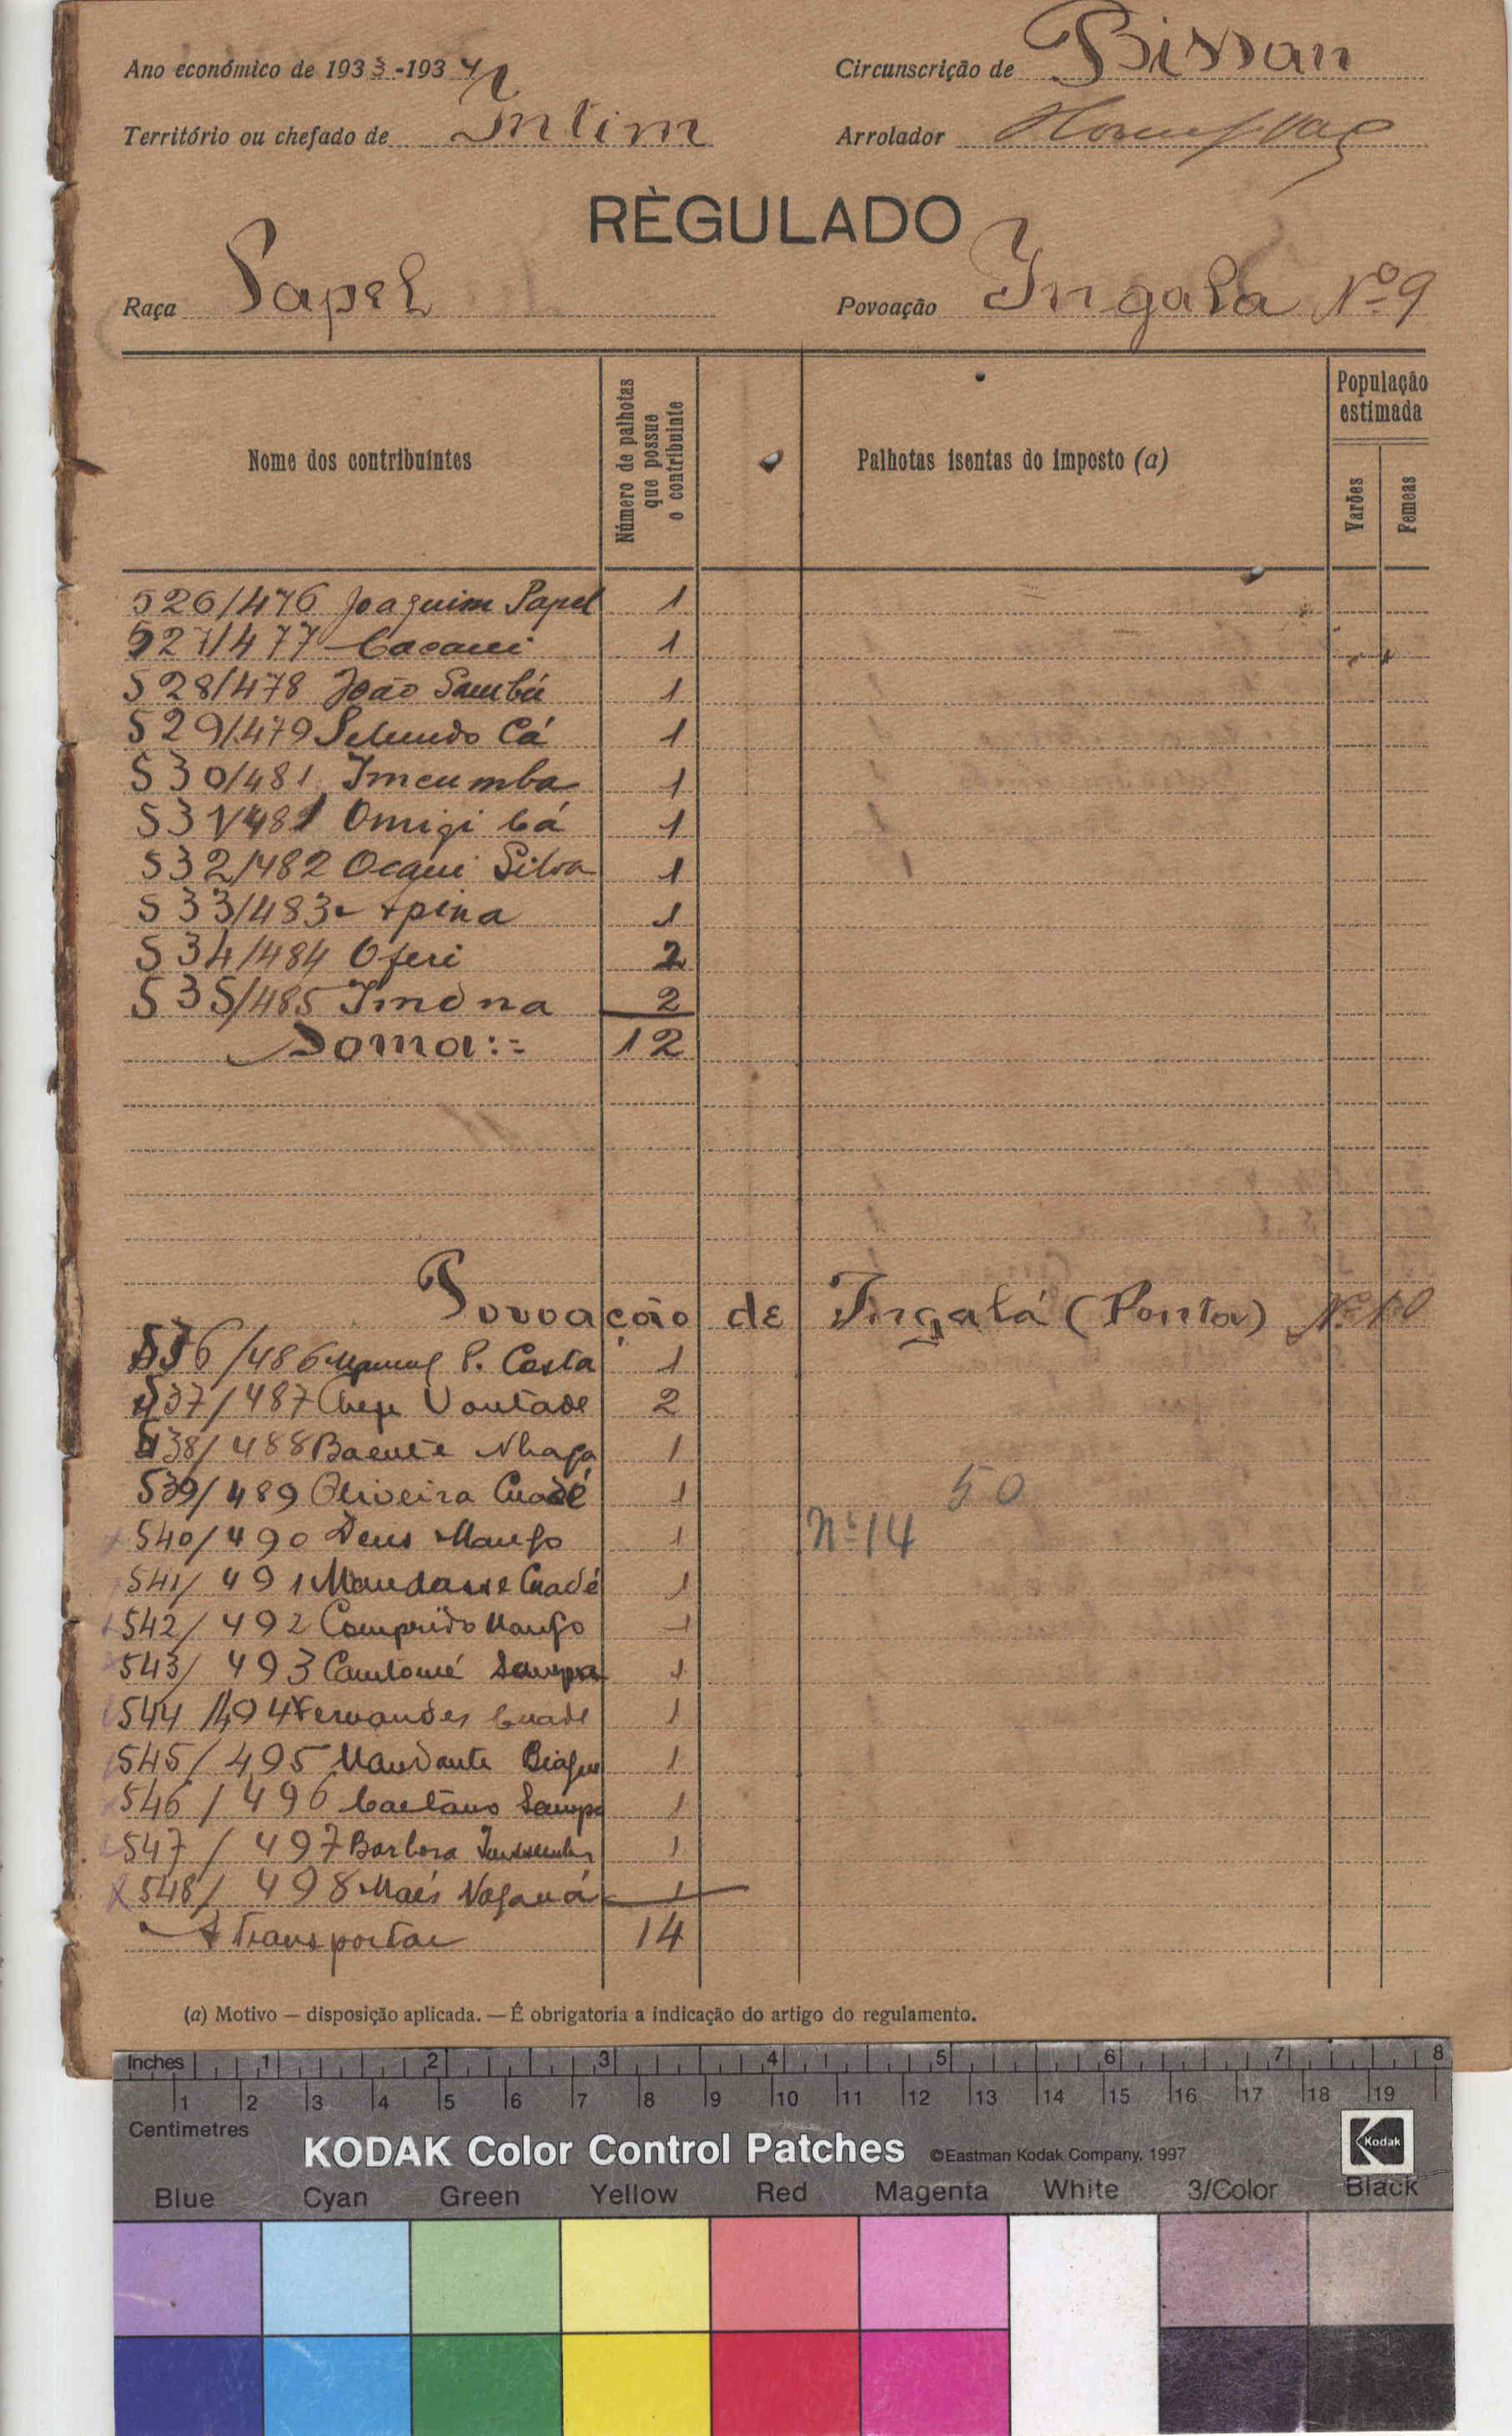 Ano económico de 1933-1934
Circunscrição de Bissau
Território ou chefado de Intim
Arrolador
RÈGULADO
Raça Papel
Povoação Ingala Nº 9
Nome dos contribuintes
Número de palhotas que possue o contribuinte
Palhotas isentas do imposto (a)
População estimada
Varões
Femeas
526/476 Joaquim Papel 1
527/477 Cacaui 1
528/478 João Sambú 1
529/479 Segundo Cá 1
530/481 Imcumba 1
531/481 Omigi Cá 1
532/482 Ocqui Silva 1
533/483 pina 1
534/484 Oferi 2
535/485 Imóna 2
Soma:= 12
Povoação de Ingalá (Ponta) Nº 10
536/486 Manuel P. Costa 1
537/487 Chege Vontade 2
538/488 Nhaga 1
539/489 Oliveira Cuadé 1
50
540/490 Deus Mango 1
Nº 14
541/491 Cuadé 1
542/492 Comprido Mango 1
543/493 Sampa 1
544/494 Fernandes Cuadé 1
545/495 Mandante Biague 1
546/496 Caetano Sampa 1
547/497 Barbosa 1
548/498 1
A Transportar 14
(a) Motivo — disposição aplicada. — É obrigatoria a indicação do artigo do regulamento.
Inches 1 2 3 4 5 6 7 8
1 2 3 4 5 6 7 8 9 10 11 12 13 14 15 16 17 18 19
Centimetres
KODAK Color Control Patches ©Eastman Kodak Company, 1997 Kodak
Blue Cyan Green Yellow Red Magenta White 3/Color Black